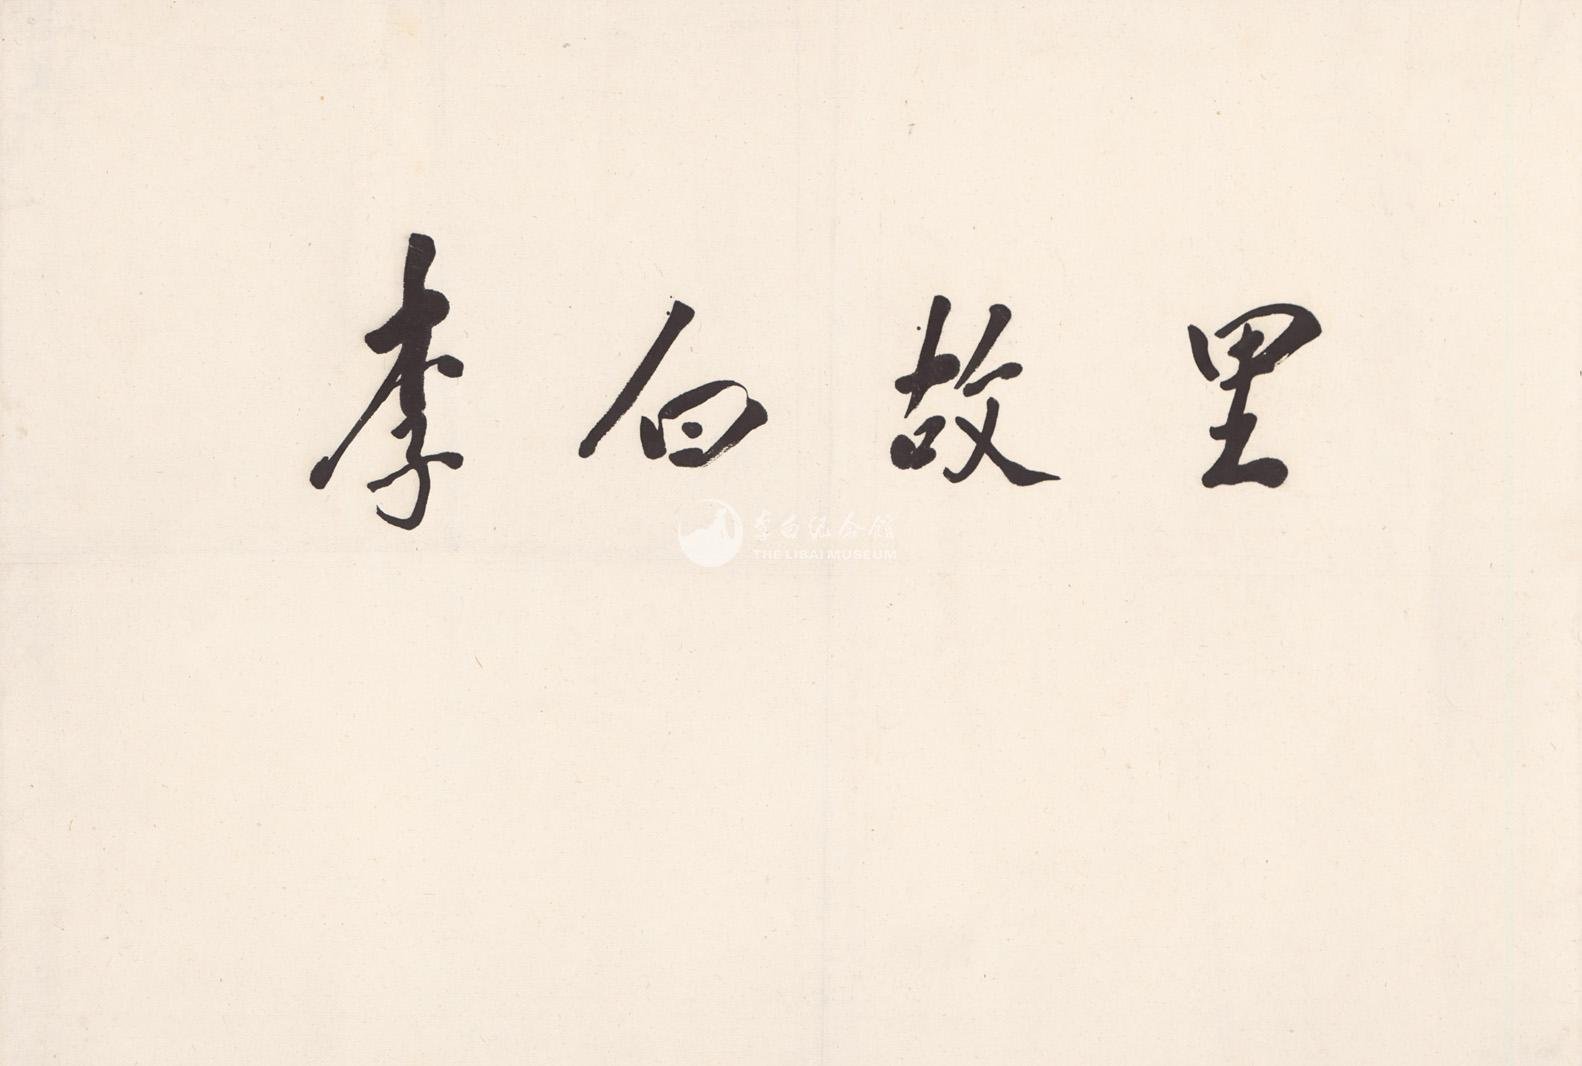 李白故里
李白纪念馆
THE LIBAI MUSEUM